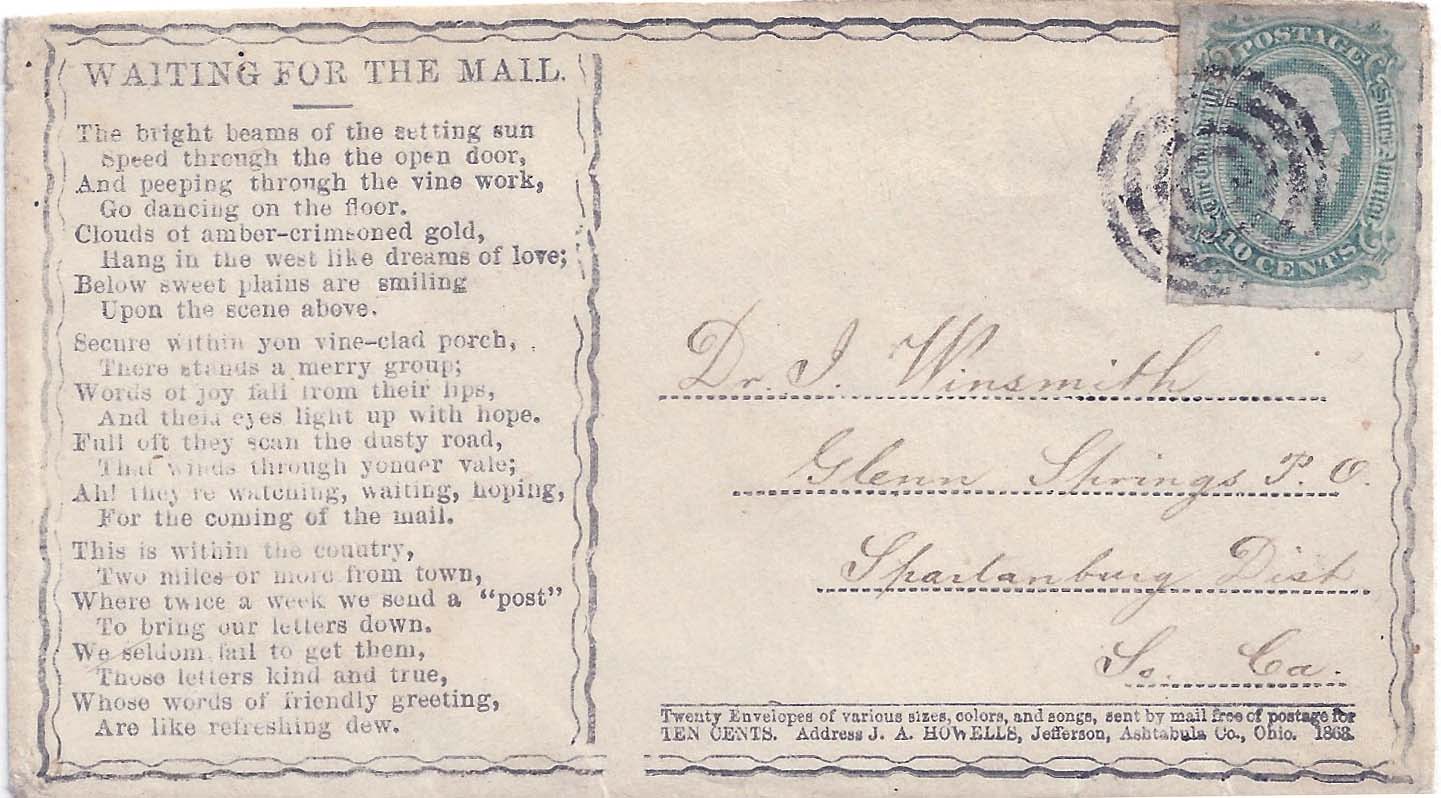 WAITING FOR THE MAIL.
The bright beams of the setting sun
Speed through the the open door,
And peeping through the vine work,
Go dancing on the floor.
Clouds of amber-crimsoned gold,
Hang in the west like dreams of love;
Below sweet plains are smiling
Upon the scene above.
Secure within yon vine-clad porch,
There stands a merry group;
Words of joy fall from their lips,
And their eyes light up with hope.
Full oft they scan the dusty road,
That winds through yonder vale;
Ah! they're watching, waiting, hoping,
For the coming of the mail.
This is within the country,
Two miles or more from town,
Where twice a week we send a "post"
To bring our letters down.
We seldom fail to get them,
Those letters kind and true,
Whose words of friendly greeting,
Are like refreshing dew.
POSTAGE
The Confederate States of America
10 CENTS
Dr. J. Winsmith
Glenn Springs P. O.
Spartanburg Dist
So. Ca.
Twenty Envelopes of various sizes, colors, and songs, sent by mail free of postage for
TEN CENTS. Address J. A. HOWELLS, Jefferson, Ashtabula Co., Ohio. 1863.